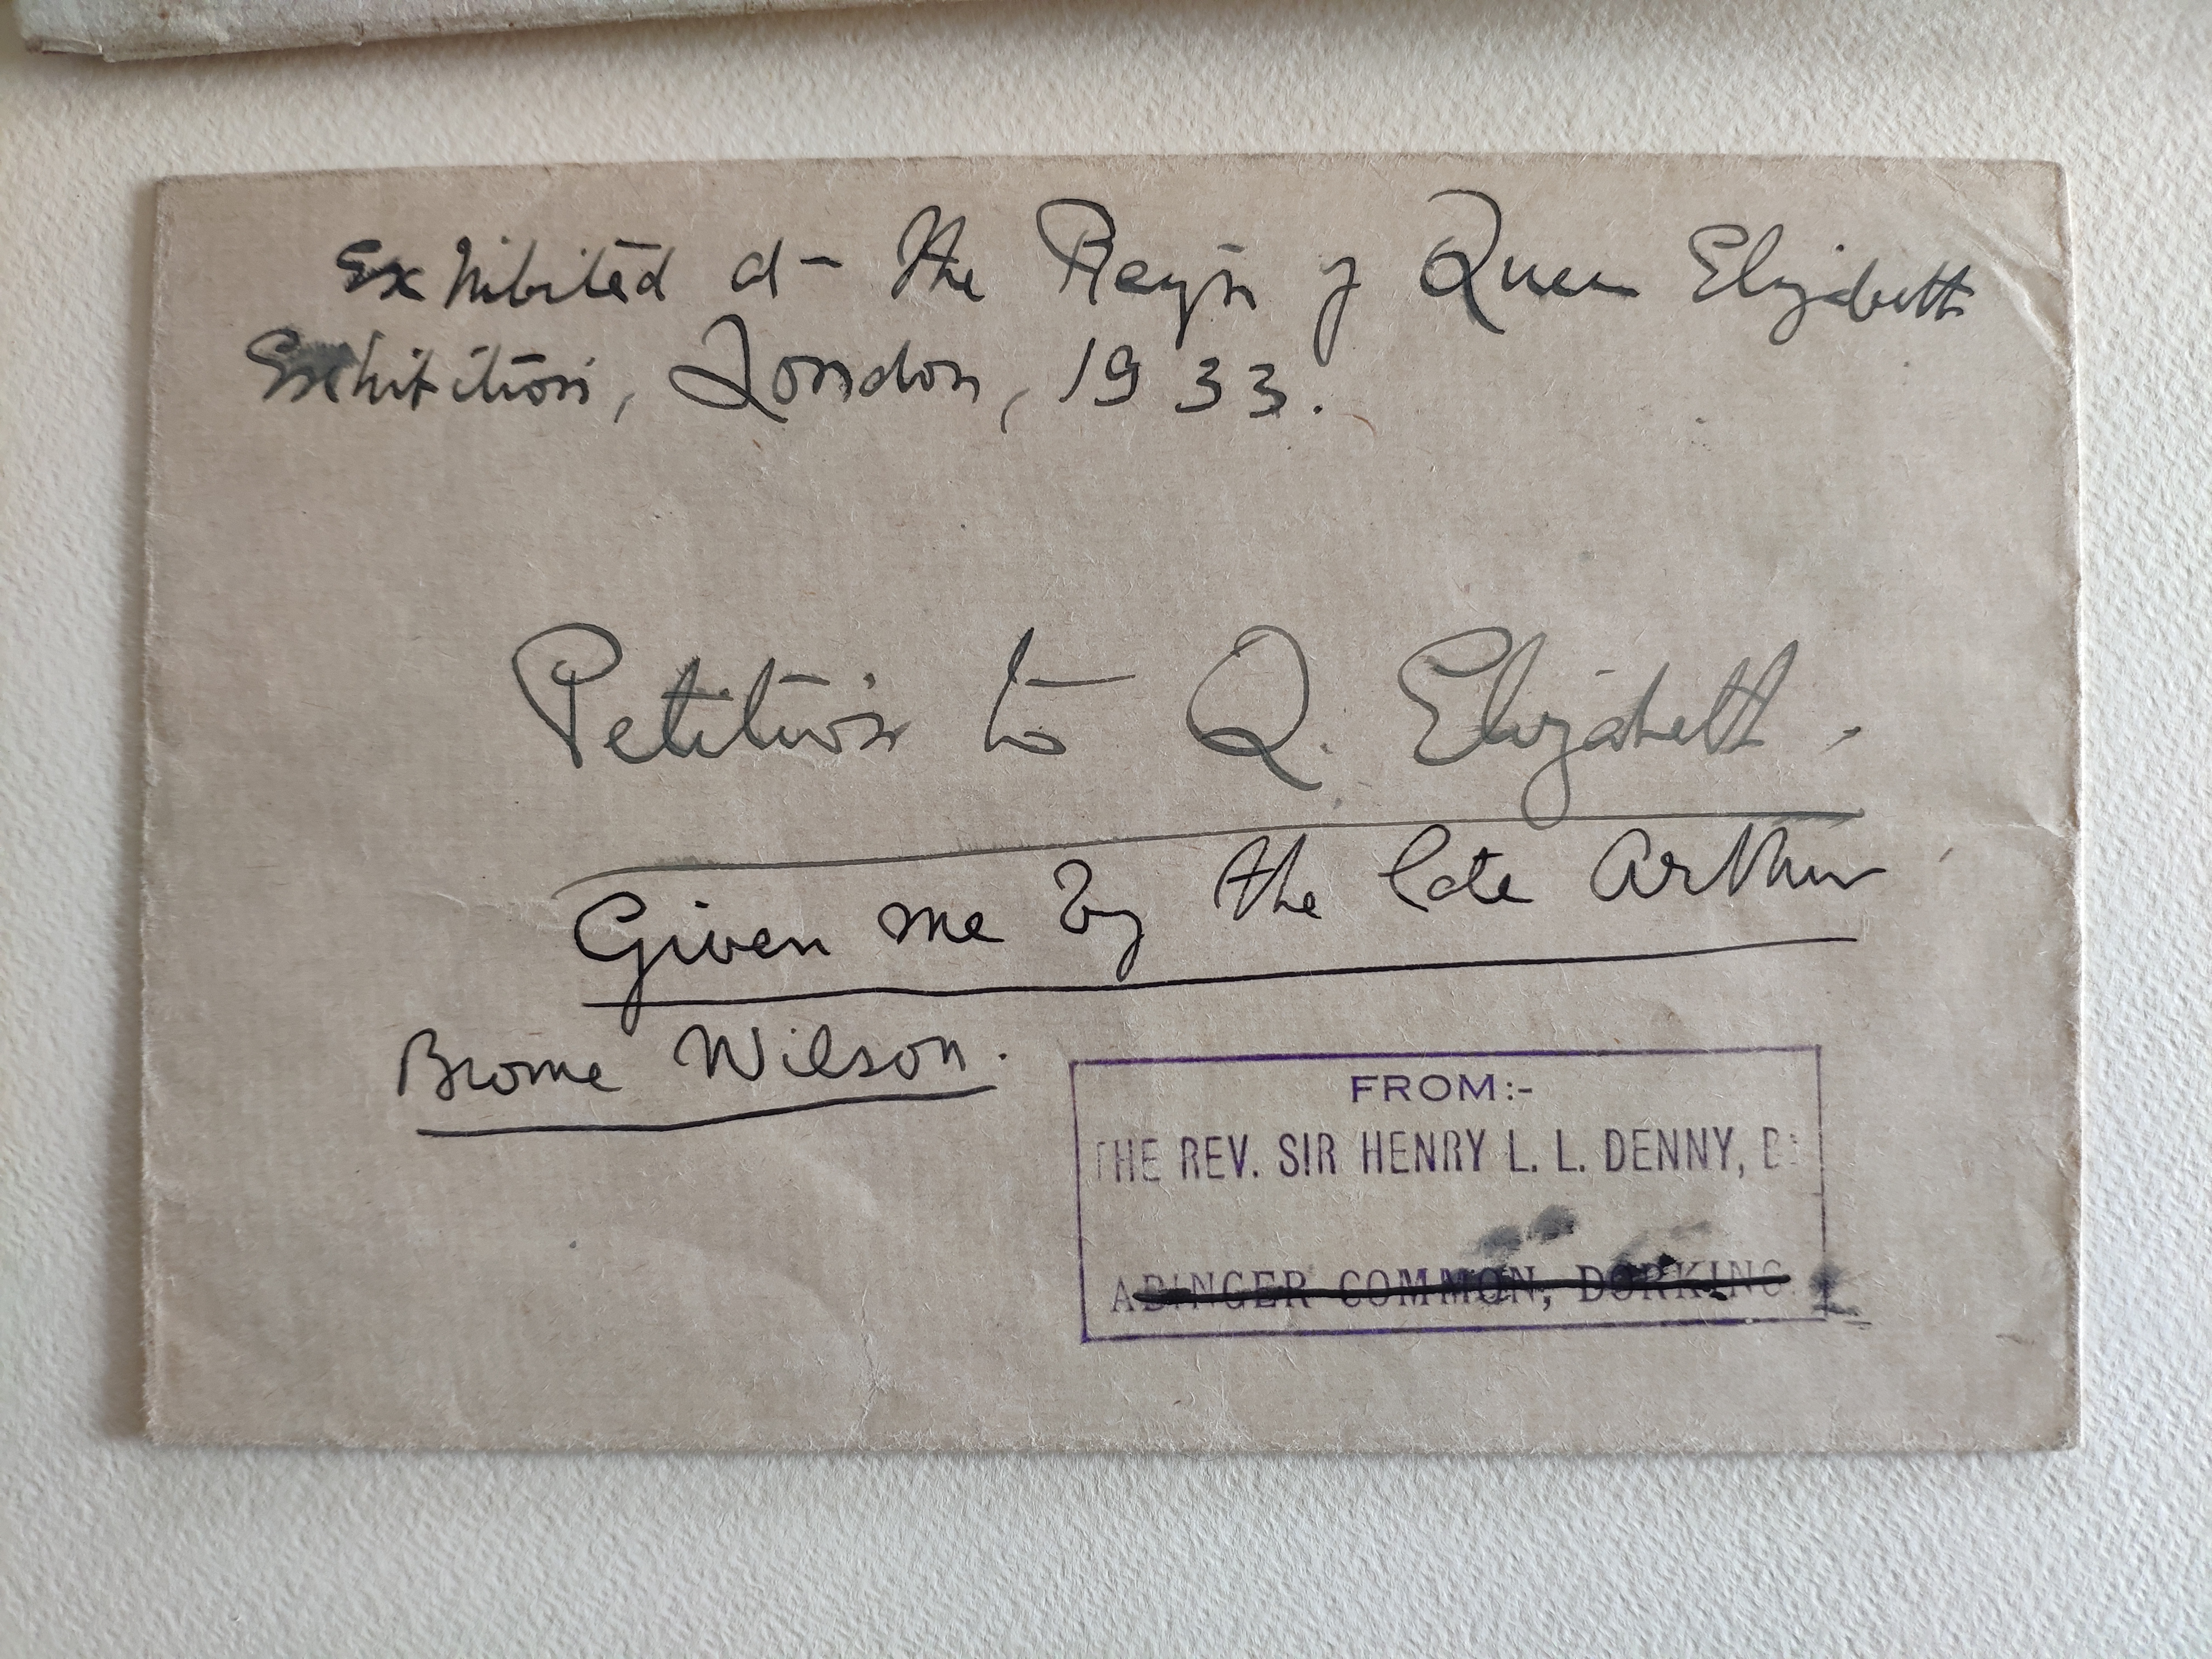 Exhibited at the Reign of Queen Elizabeth
Exhibition, London, 1933.
Petition to Q. Elizabeth.
Given me by the late Arthur
Brome Wilson.
FROM:-
THE REV. SIR HENRY L. L. DENNY,
ABINGER COMMON, DORKING